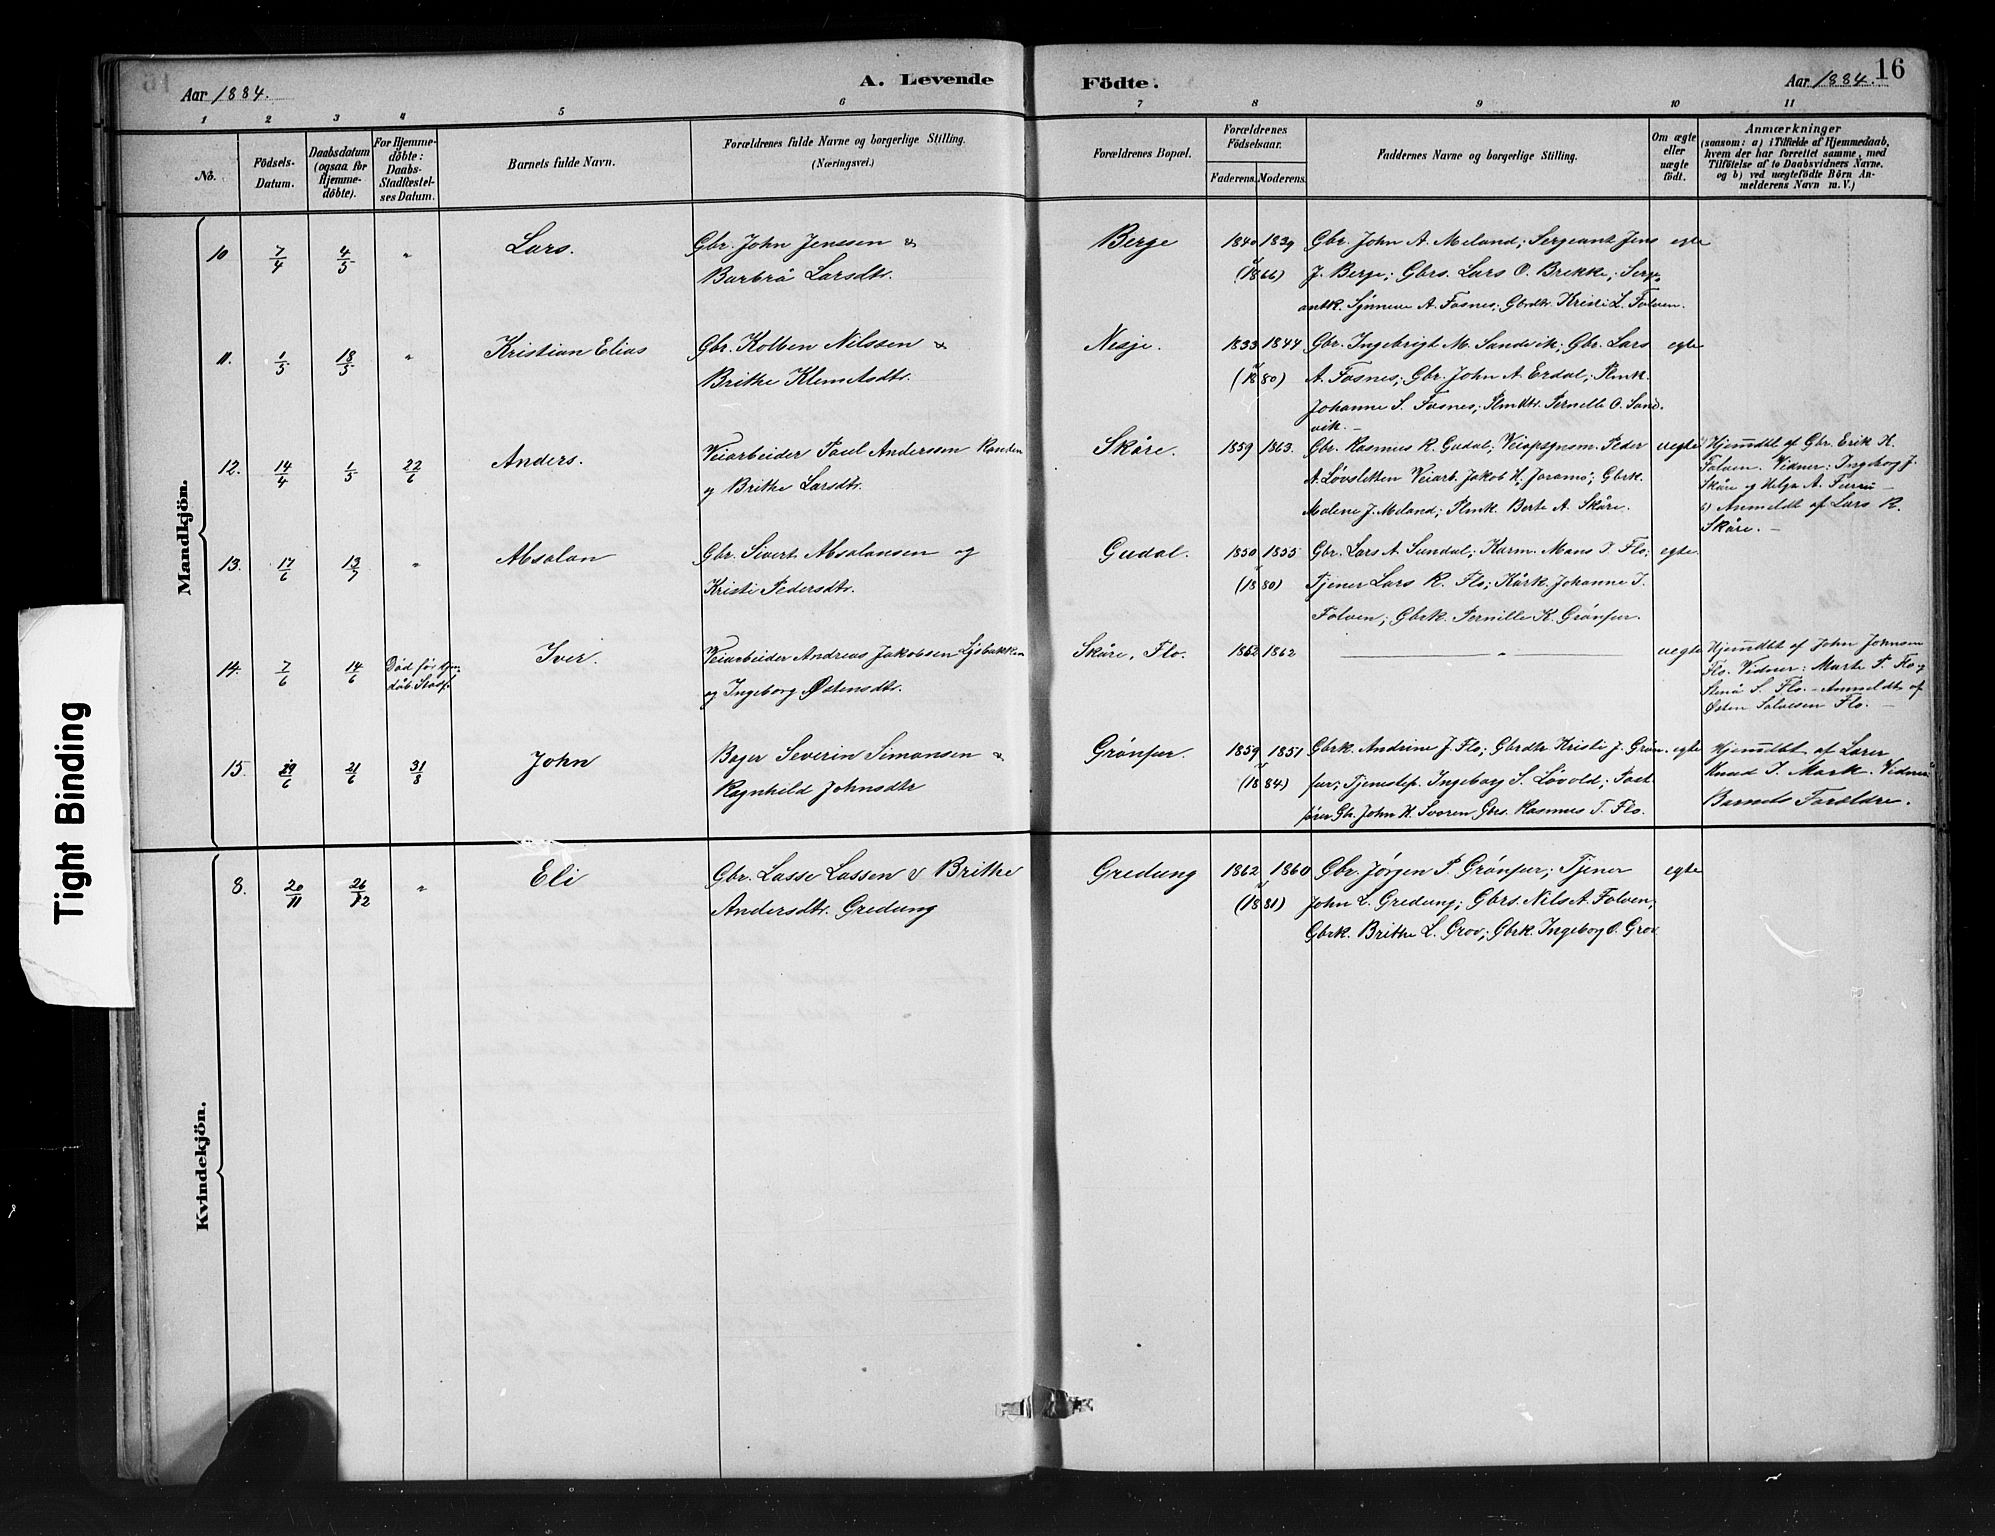 16
Aar 1884.
A. Levende Födte.
Aar 1884.
1 2 3 4 5 6 7 8 9 10 11
No.
Födsels-Datum.
Daabsdatum (ogsaa for Hjemme-döbte).
For Hjemme-döbte: Daabs-Stadfæstel-ses Datum.
Barnets fulde Navn.
Forældrenes fulde Navne og borgerlige Stilling.
(Næringsvei.)
Forældrenes Bopæl.
Forældrenes Födselsaar.
Faderens. Moderens.
Faddernes Navne og borgerlige Stilling.
Om ægte eller uægte födt.
Anmærkninger
(saasom: a) i Tilfælde af Hjemmedaab,
hvem der har forrettet samme, med
Tilföielse af to Daabsvidners Navne,
og b) ved uægtefödte Börn An-
melderens Navn m. V.)
Mandkjön.
10 7/4 4/5 " Lars. Gbr. John Jenssen & Berge 1840 1839 Gbr. John A. Meland; Sergeant Jens egte
Barbrå Larsdtr. (1866) J. Berge; Gbrs. Lars O. Brekke; Serge
antk. Synneve A. Fosnes; Gbrdtr. Kristi L. Folven.
11. 1/5 18/5 " Kristian Elias Gbr. Kolben Nilssen & Nesje. 1833 1844 Gbr. Ingebrigt M. Sandvik; Gbr. Lars egte
Brithe Klemetsdtr. (1880) A. Fosnes; Gbr. John A. Erdal; Plmk.
Johanne S. Fosnes; Plmdtr. Pernille O. Sand-
vik.
12. 14/4 1/5 22/6 Anders. Veiarbeider Paul Anderssen Randen Skåre. 1859 1863. Gbr. Rasmus R. Gudal; Veiopsynsm. Peder uegte Hjemmdbt af Gbr. Erik H.
og Brithe Larsdtr. A. Løvsletten Veiarb. Jakob H. Joramo; Gbrk. Folven. Vidner: Ingeborg J.
Malene J. Meland; Plmk. Berte A. Skåre. Skåre og Helga A.
b) Anmeldt af Lars R.
Skåre.
13. 17/6 13/7 " Absalon Gbr. Sivert Absalonsen og Gudal. 1850 1855 Gbr. Lars A. Sundal; Karm. Mons T. Flo; egte
Kristi Pedersdtr. (1880) Tjener Lars R. Flo; Kårk. Johanne T.
Folven; Gbrk. Pernille K. Grönfur.
14. 7/6 14/6 Död før Hjem. döb. Stadf. Iver. Veiarbeider Andreas Jakobsen Ljøbakken Skåre, Flo. 1862 1862 " uegte Hjemmdbt af John Johnsen
og Ingeborg Østensdtr. Flo. Vidner: Marte P. Flo og
Stina S. Flo. Anmeldt af
Østen Salvesen Flo.
15. 29/6 21/6 31/8 John Bager Severin Simonsen & Grönfur. 1859 1851 Gbrk. Andrine J. Flo; Gbrdtr. Kristi J. Grön- egte Hjemmdbt af Lærer
Ragnhild Johnsdtr (1884) fur; Tjenestep. Ingeborg S. Lövold; Post- Knud T. Mark. Vidner
fører Gb. John H. Svoren Gbrs. Rasmus T. Flo. Barnets Foræ̈ldre.
Kvindekjön.
8. 20/11 26/12 " Eli Gbr. Lasse Lassen & Brithe Gredung 1862 1860 Gbr. Jørgen P. Grönfur; Tjener egte
Andersdtr. Gredung (1881) John L. Gredung; Gbrs. Nils A. Folven;
Gbrk. Brithe L. Grov; Gbrk. Ingeborg O. Grov
Tight Binding